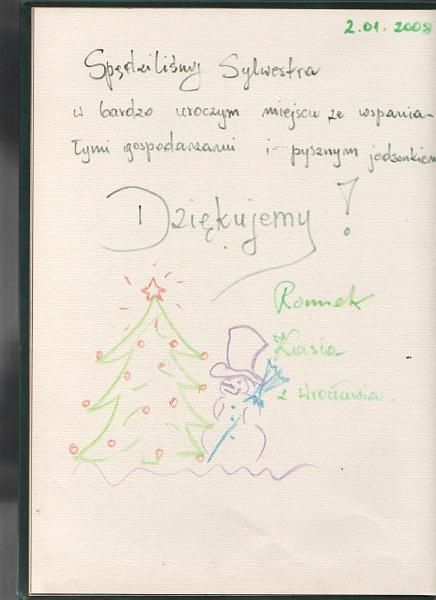 2.01.2008
Spędziliśmy Sylwestra
w bardzo uroczym miejscu ze wspania-
łymi gospodarzami i pysznym jedzonkiem
Dziękujemy!
Romek
Kasia
z Wrocławia.